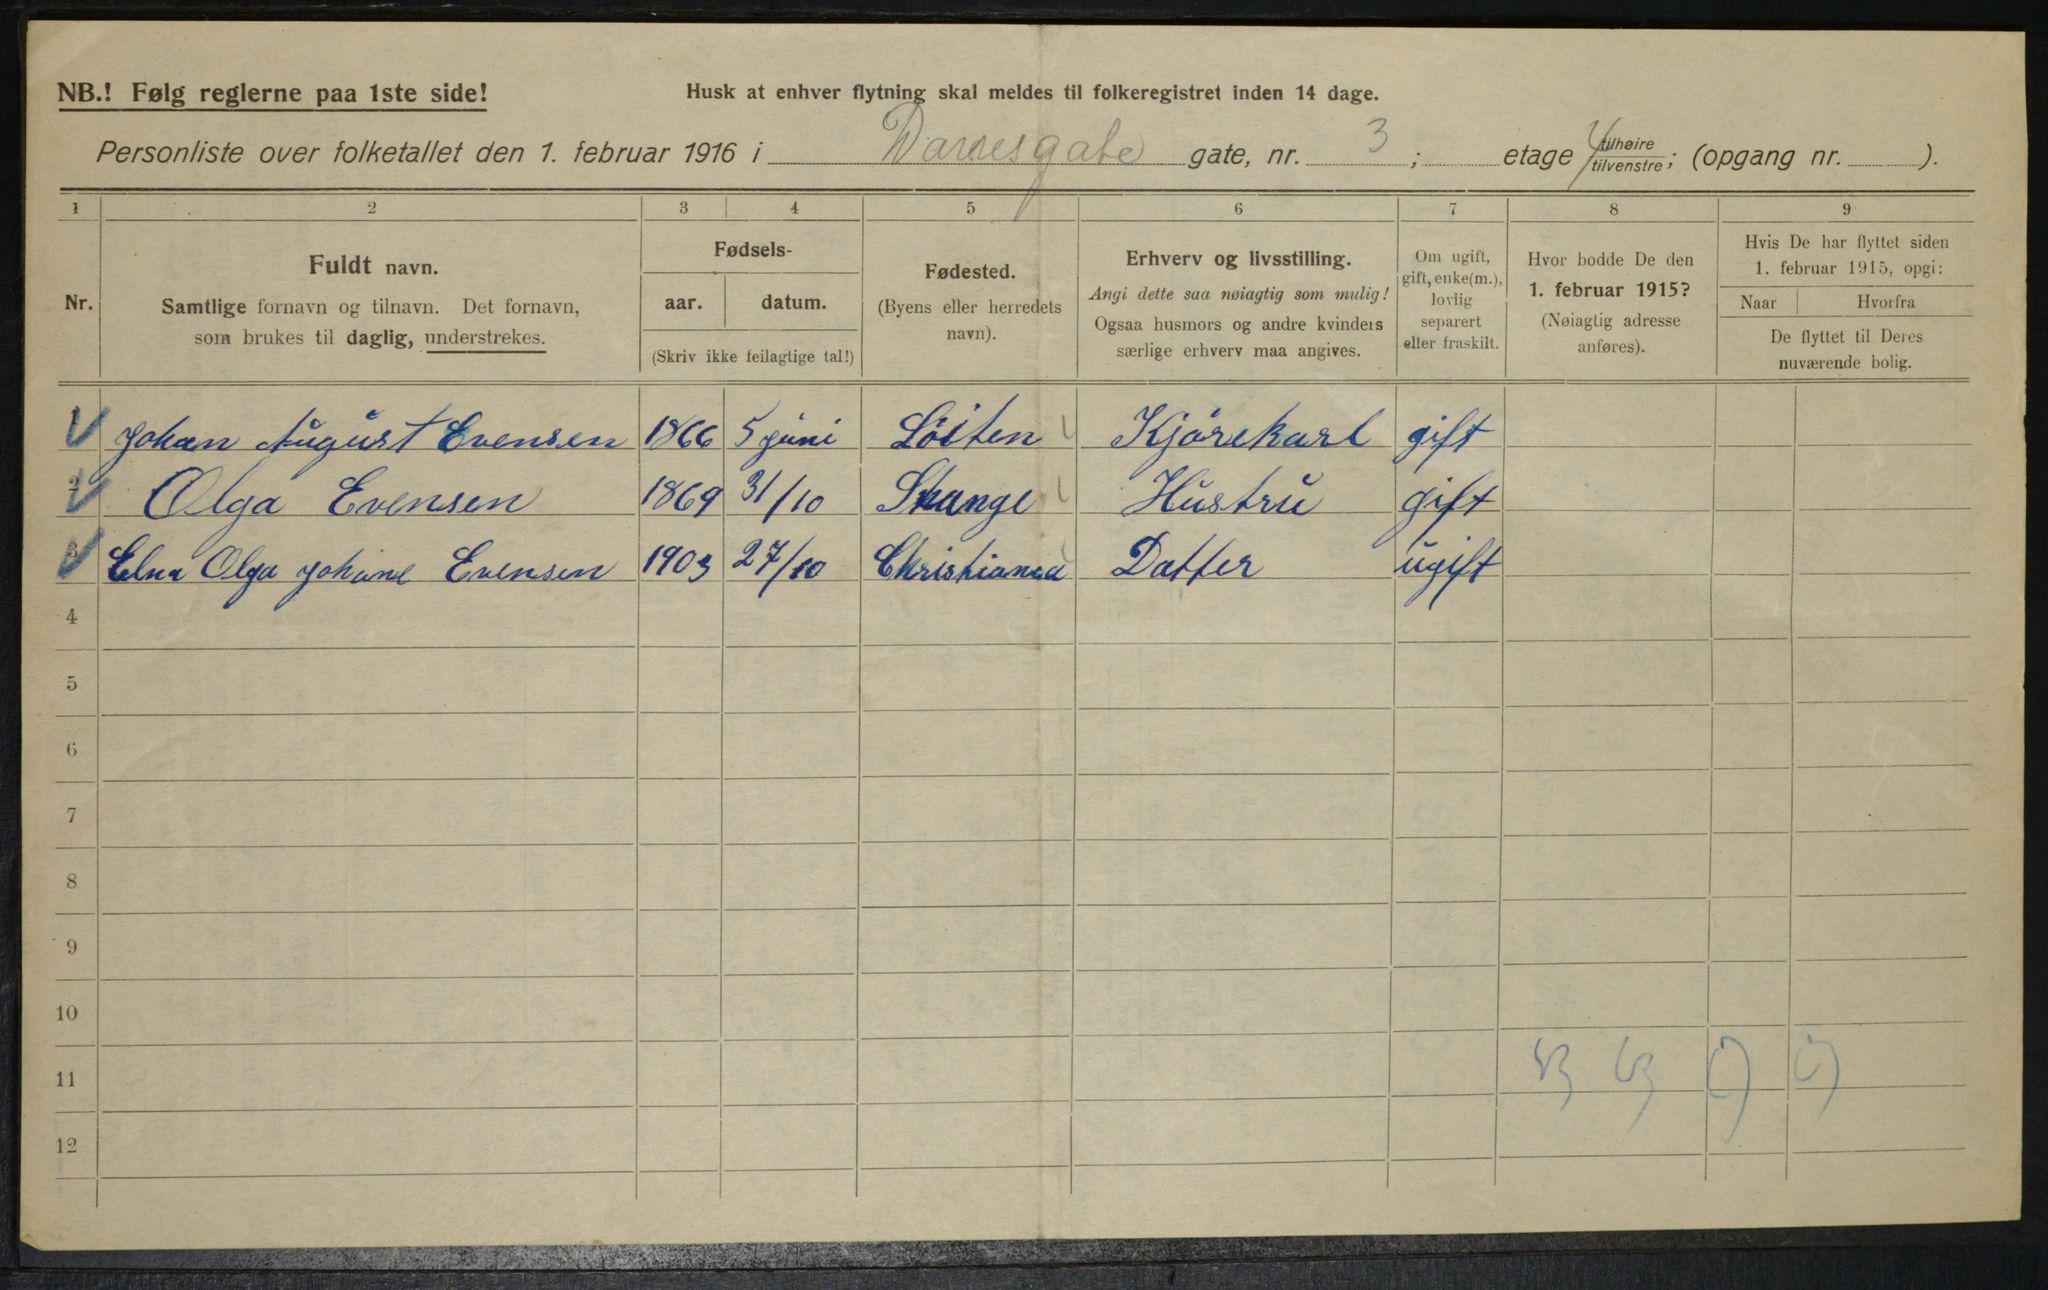 NB.! Følg reglerne paa 1ste side!
Husk at enhver flytning skal meldes til folkeregistret inden 14 dage.
Personliste over folketallet den 1. februar 1916 i Darresgate gate, nr. 3; etage tilhøire tilvenstre; (opgang nr. ).
1 2 3 4 5 6 7 8 9
Nr.
Fuldt navn.
Samtlige fornavn og tilnavn. Det fornavn,
som brukes til daglig, understrekes.
Fødsels-
aar. datum.
(Skriv ikke feilagtige tal!)
Fødested.
(Byens eller herredets
navn).
Erhverv og livsstilling.
Angi dette saa nøiagtig som mulig!
Ogsaa husmors og andre kvinders
særlige erhverv maa angives.
Om ugift,
gift, enke(m.),
lovlig
separert
eller fraskilt.
Hvor bodde De den
1. februar 1915?
(Nøiagtig adresse
anføres).
Hvis De har flyttet siden
1. februar 1915, opgi:
Naar Hvorfra
De flyttet til Deres
nuværende bolig.
1 Johan August Evensen 1866 5 juni Löiten Kjörekarl gift
2 Olga Evensen 1869 31/10 Stange Hustru gift
3 Elna Olga Johane Evensen 1903 27/10 Christiania Datter ugift
4
5
6
7
8
9
10
11
12